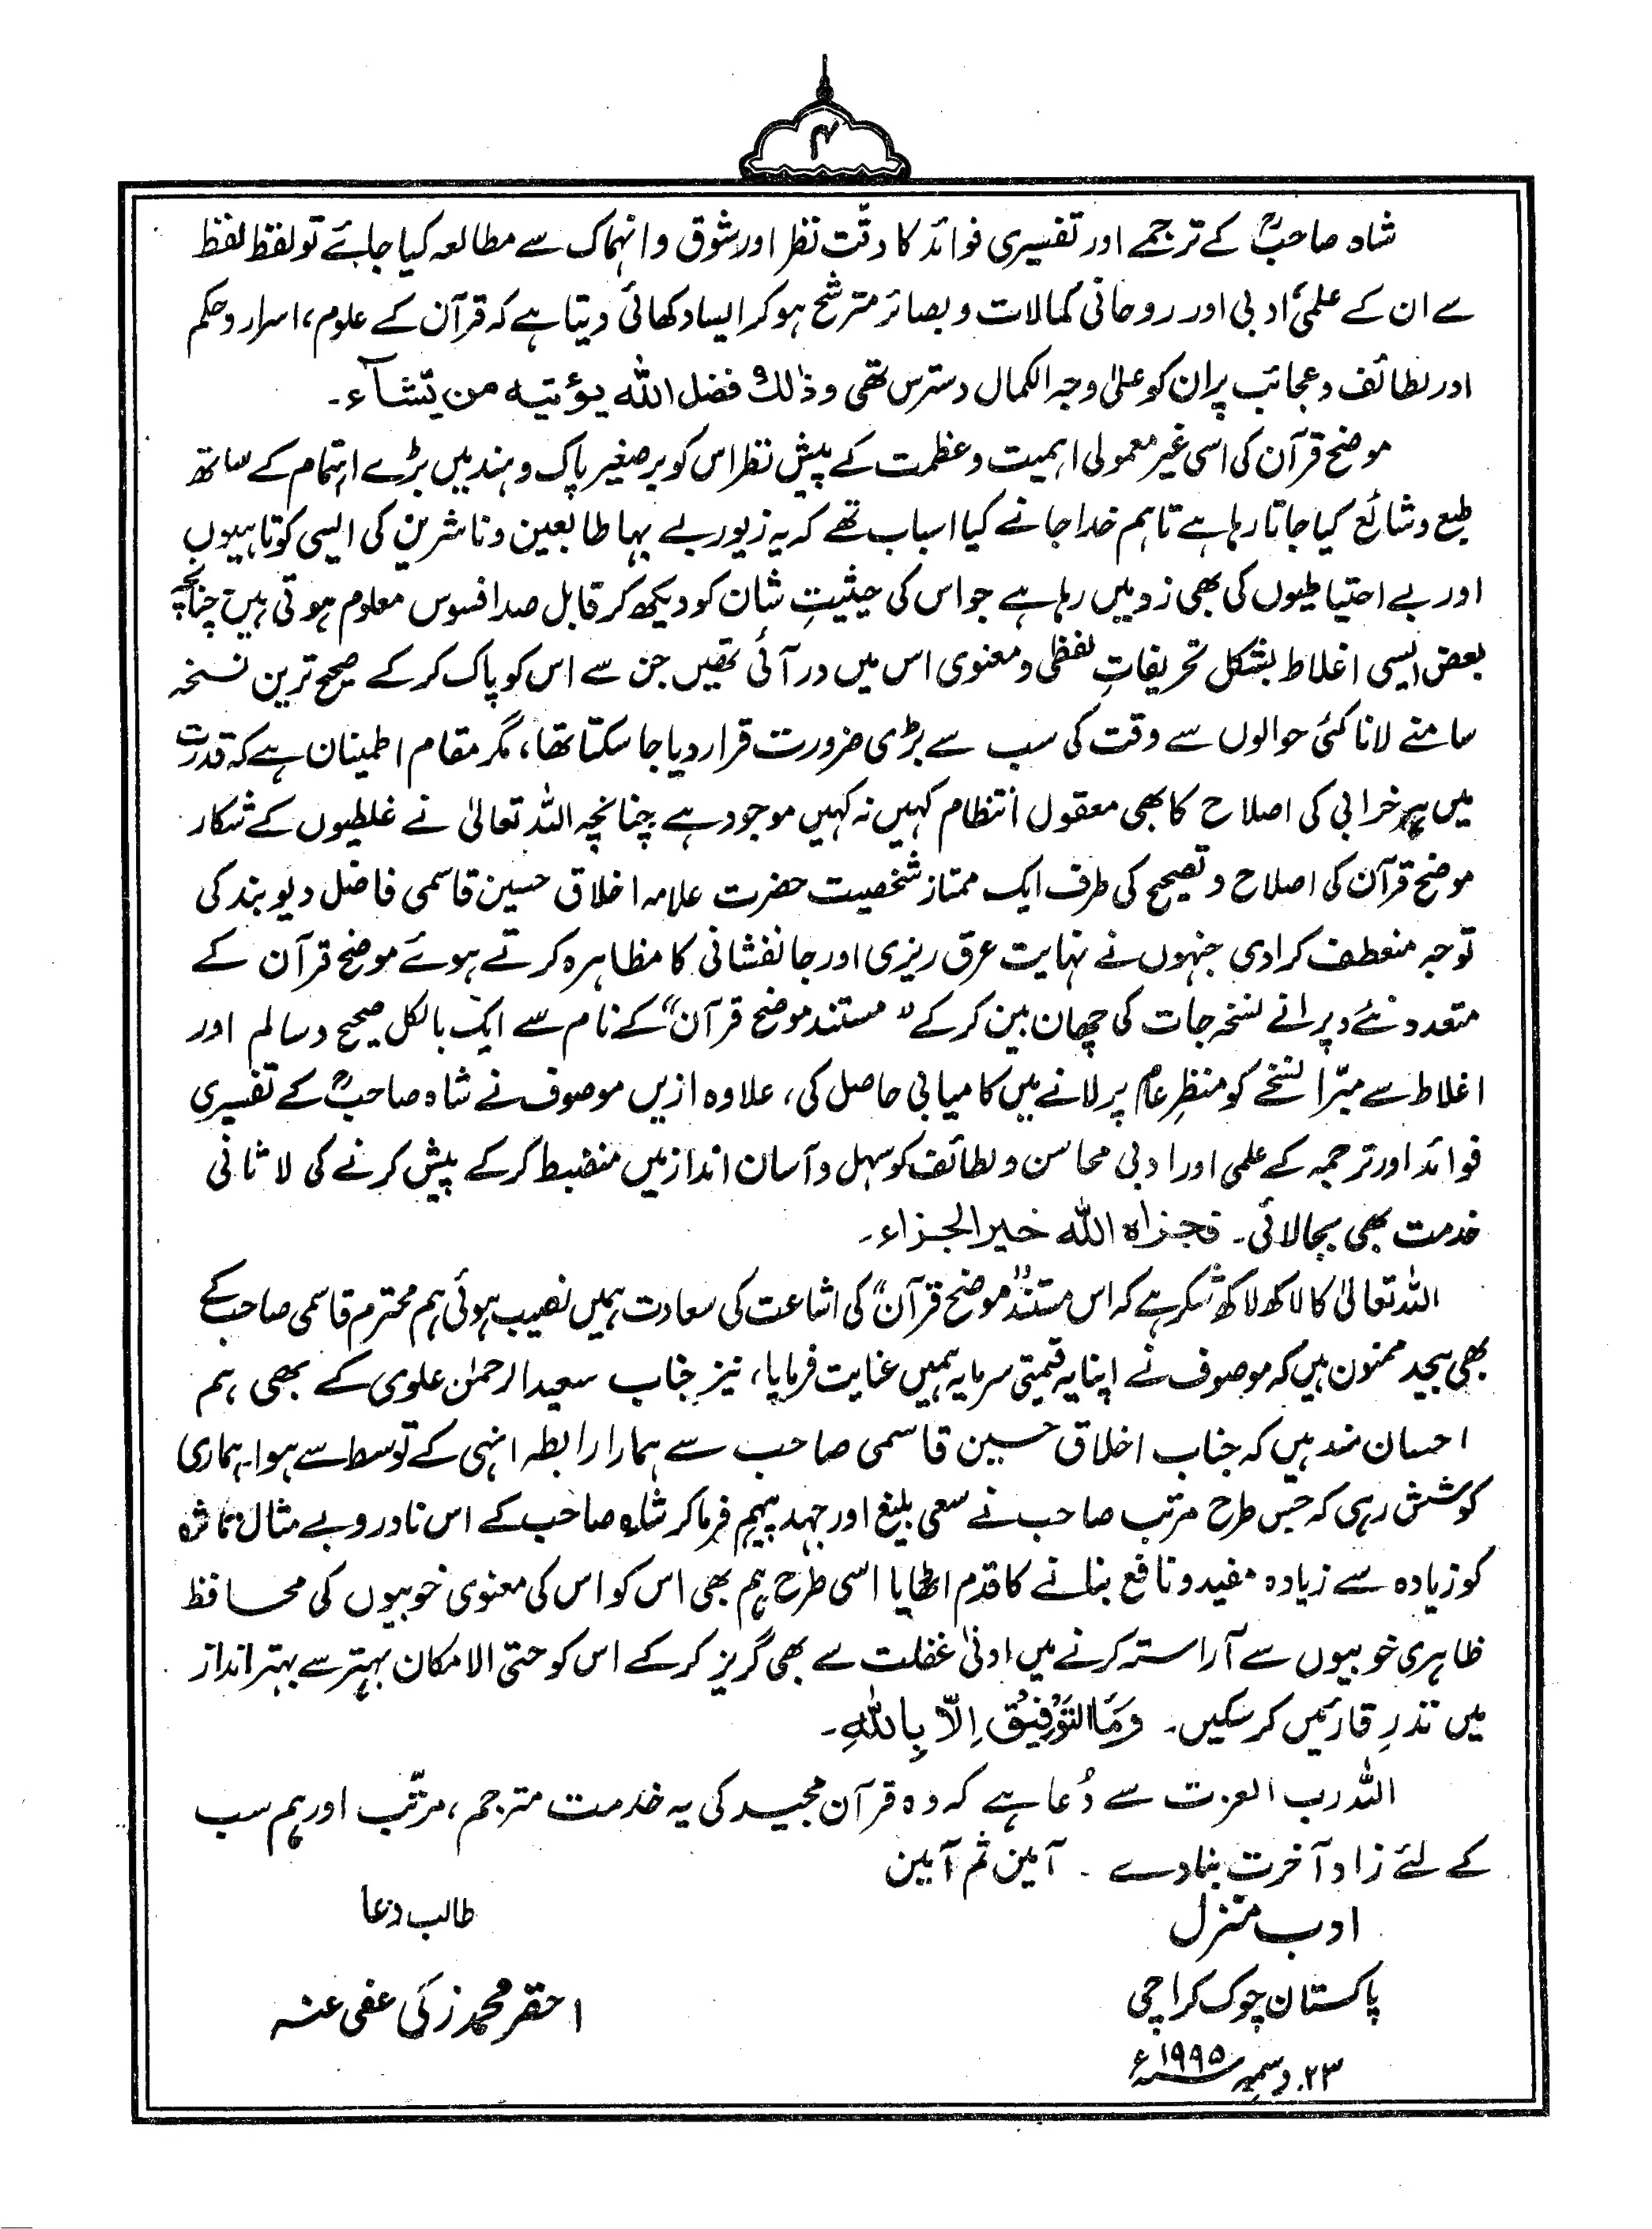 ۴
شاہ صاحبؒ کے ترجمے اور تفسیری فوائد کا دقّت نظر اور شوق و انہماک سے مطالعہ کیا جائے تو لفظ لفظ
سے ان کے علمی، ادبی اور روحانی کمالات و بصائر مترشح ہو کر ایسا دکھائی دیتا ہے کہ قرآن کے علوم، اسرار و حکم
اور لطائف و عجائب پر ان کو علیٰ وجہ الکمال دسترس تھی وذٰلک فضل اللہ یؤتیہ من یّشآء۔
موضح قرآن کی اسی غیر معمولی اہمیت و عظمت کے پیش نظر اس کو برصغیر پاک و ہند میں بڑے اہتمام کے ساتھ
طبع و شائع کیا جاتا رہا ہے تاہم خدا جانے کیا اسباب تھے کہ یہ زیور بے بہا طابعین و ناشرین کی ایسی کوتاہیوں
اور بے احتیاطیوں کی بھی زد میں رہا ہے جو اس کی حیثیتِ شان کو دیکھ کر قابل صد افسوس معلوم ہوتی ہیں چنانچہ
بعض ایسی اغلاط بشکل تحریفاتِ لفظی و معنوی اس میں در آئی تھیں جن سے اس کو پاک کر کے صحیح ترین نسخہ
سامنے لانا کئی حوالوں سے وقت کی سب سے بڑی ضرورت قرار دیا جا سکتا تھا، مگر مقام اطمینان ہے کہ قدرت
میں ہر خرابی کی اصلاح کا بھی معقول انتظام کہیں نہ کہیں موجود ہے چنانچہ اللہ تعالیٰ نے غلطیوں کے شکار
موضح قرآن کی اصلاح و تصحیح کی طرف ایک ممتاز شخصیت حضرت علامہ اخلاق حسین قاسمی فاضل دیوبند کی
توجہ منعطف کرادی جنہوں نے نہایت عرق ریزی اور جانفشانی کا مظاہرہ کرتے ہوئے موضح قرآن کے
متعدد نئے و پرانے نسخہ جات کی چھان بین کر کے ”مستند موضح قرآن“ کے نام سے ایک بالکل صحیح و سالم اور
اغلاط سے مبرّا نسخے کو منظرِ عام پر لانے میں کامیابی حاصل کی، علاوہ ازیں موصوف نے شاہ صاحبؒ کے تفسیری
فوائد اور ترجمہ کے علمی اور ادبی محاسن و لطائف کو سہل و آسان انداز میں منضبط کر کے پیش کرنے کی لاثانی
خدمت بھی بجالائی۔ فجزاہ اللہ خیر الجزاء۔
اللہ تعالیٰ کا لاکھ لاکھ شکر ہے کہ اس مستند ”موضح قرآن“ کی اشاعت کی سعادت ہمیں نصیب ہوئی ہم محترم قاسمی صاحب کے
بھی بیحد ممنون ہیں کہ موصوف نے اپنا یہ قیمتی سرمایہ ہمیں عنایت فرمایا، نیز جناب سعید الرحمٰن علوی کے بھی ہم
احسان مند ہیں کہ جناب اخلاق حسین قاسمی صاحب سے ہمارا رابطہ انہی کے توسط سے ہوا۔ ہماری
کوشش رہی کہ جس طرح مرتب صاحب نے سعی بلیغ اور جہد پیہم فرما کر شاہ صاحب کے اس نادر و بے مثال
کو زیادہ سے زیادہ مفید و نافع بنانے کا قدم اٹھایا اسی طرح ہم بھی اس کو اس کی معنوی خوبیوں کی محافظ
ظاہری خوبیوں سے آراستہ کرنے میں ادنیٰ غفلت سے بھی گریز کر کے اس کو حتی الامکان بہتر سے بہتر انداز
میں نذرِ قارئیں کر سکیں۔ وَمَا التَّوْفِیْقُ اِلَّا بِاللّٰہِ۔
اللہ رب العزت سے دُعا ہے کہ وہ قرآن مجید کی یہ خدمت مترجم، مرتّب اور ہم سب
کے لئے زادِ آخرت بنادے۔ آمین ثم آمین
طالب دعا
ادب منزل
پاکستان چوک کراچی
احقر محمد زکی عفی عنہ
۲۳. دسمبر ۱۹۹۵ء